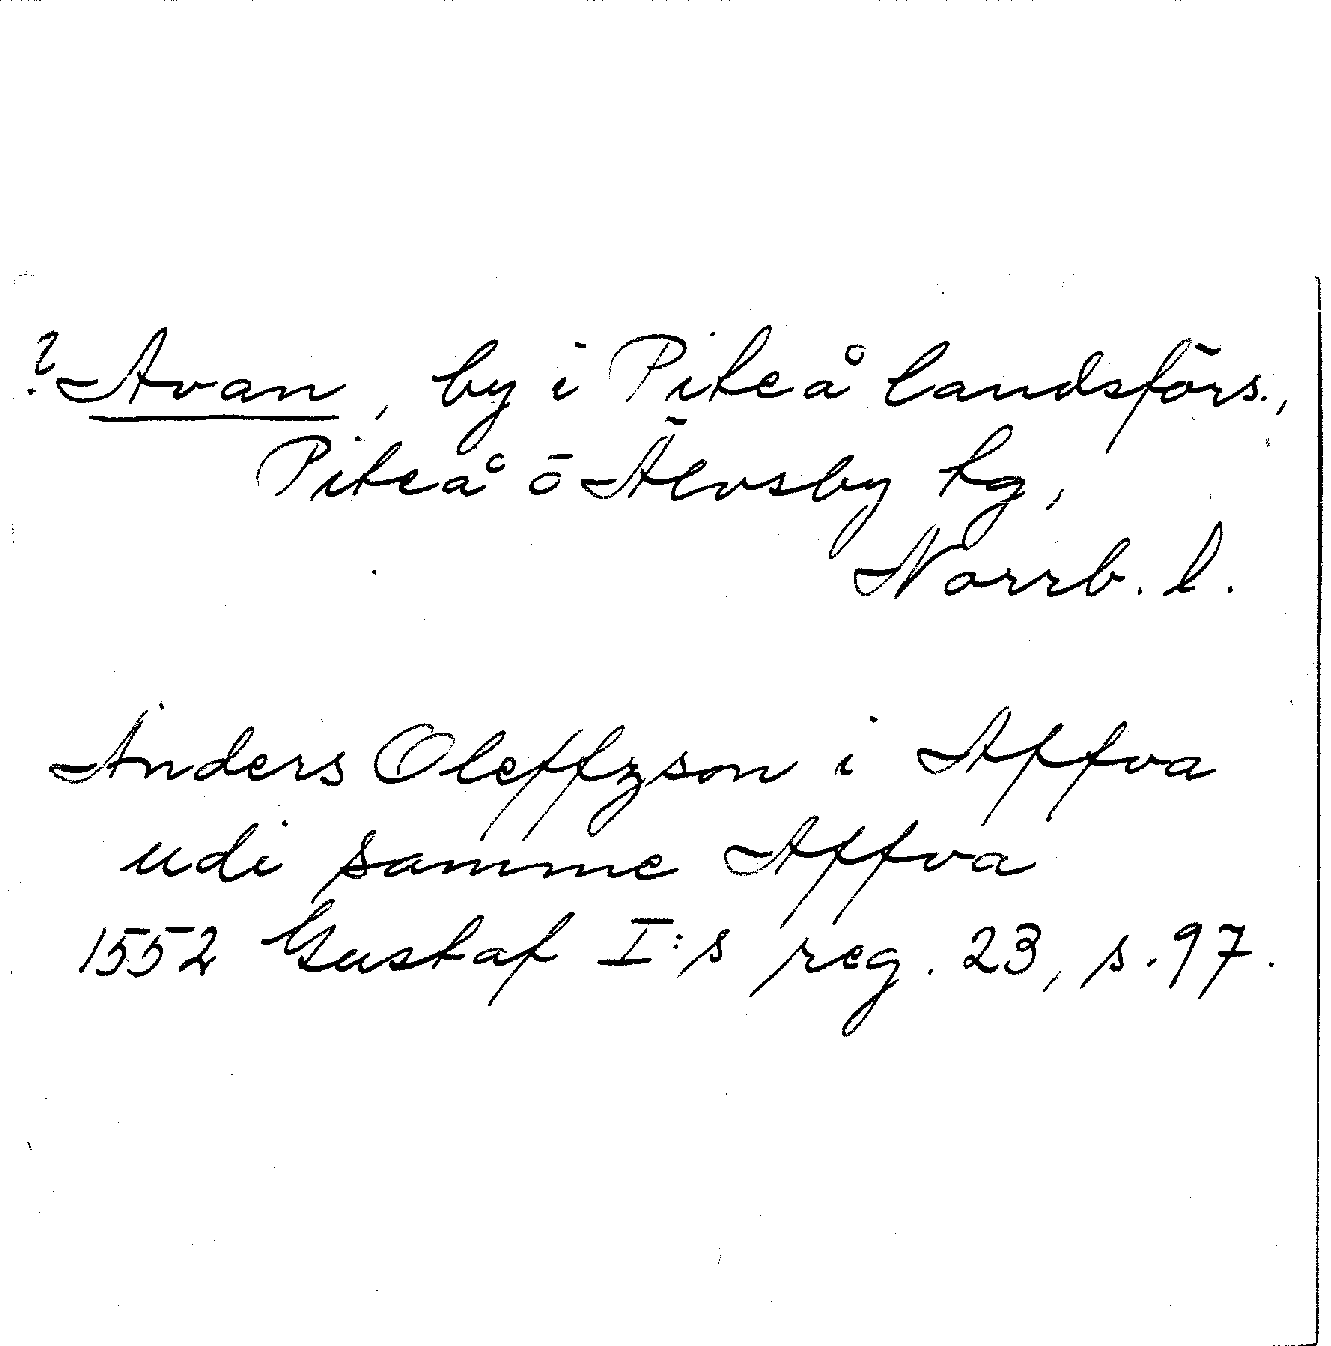 ? Avan, by i Piteå landsförs.,
Piteå o Älvsby tg,
Norrb. l.
Anders Oleffzson i Affva
udi samme Affva
1552 Gustaf I:s reg. 23, s. 97.